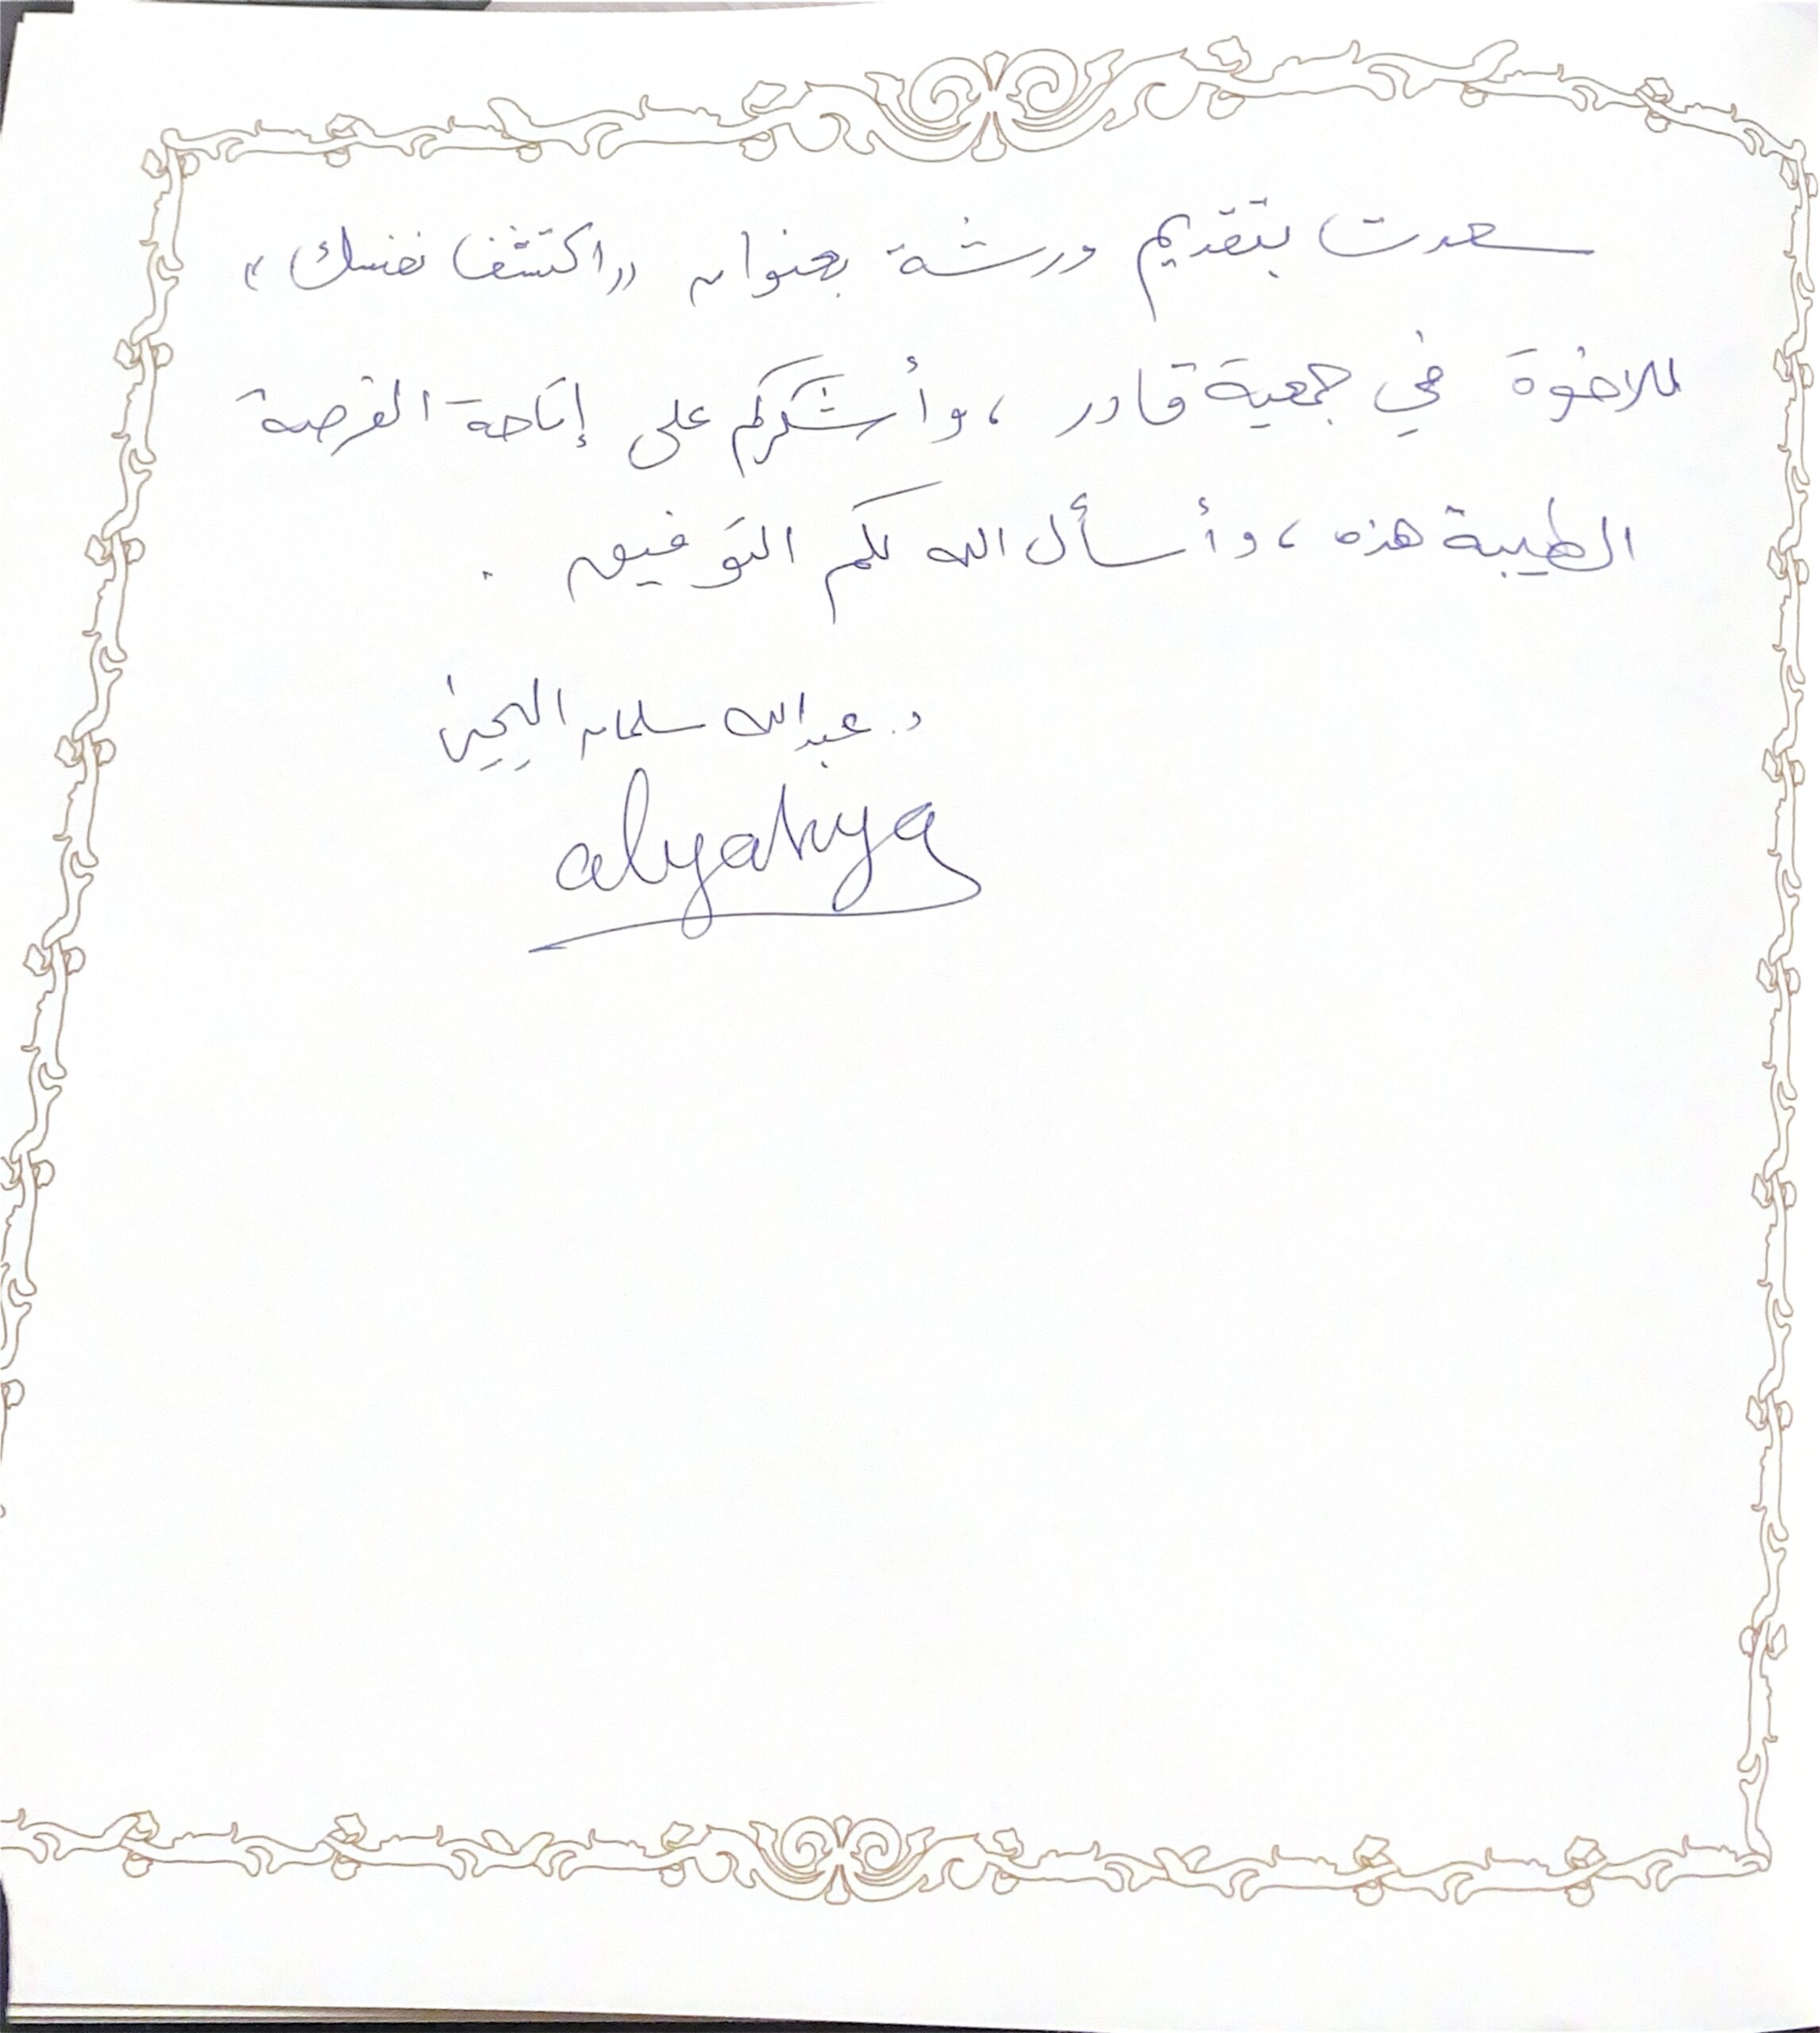 سعدت بتقديم ورشة بعنوان «اكتشف نفسك»
للاخوة في جمعية قادر، وأشكركم على إتاحة الفرصة
الطيبة هذه، وأسأل الله لكم التوفيق.
د. عبدالله سلمان اليحيى
alyahya